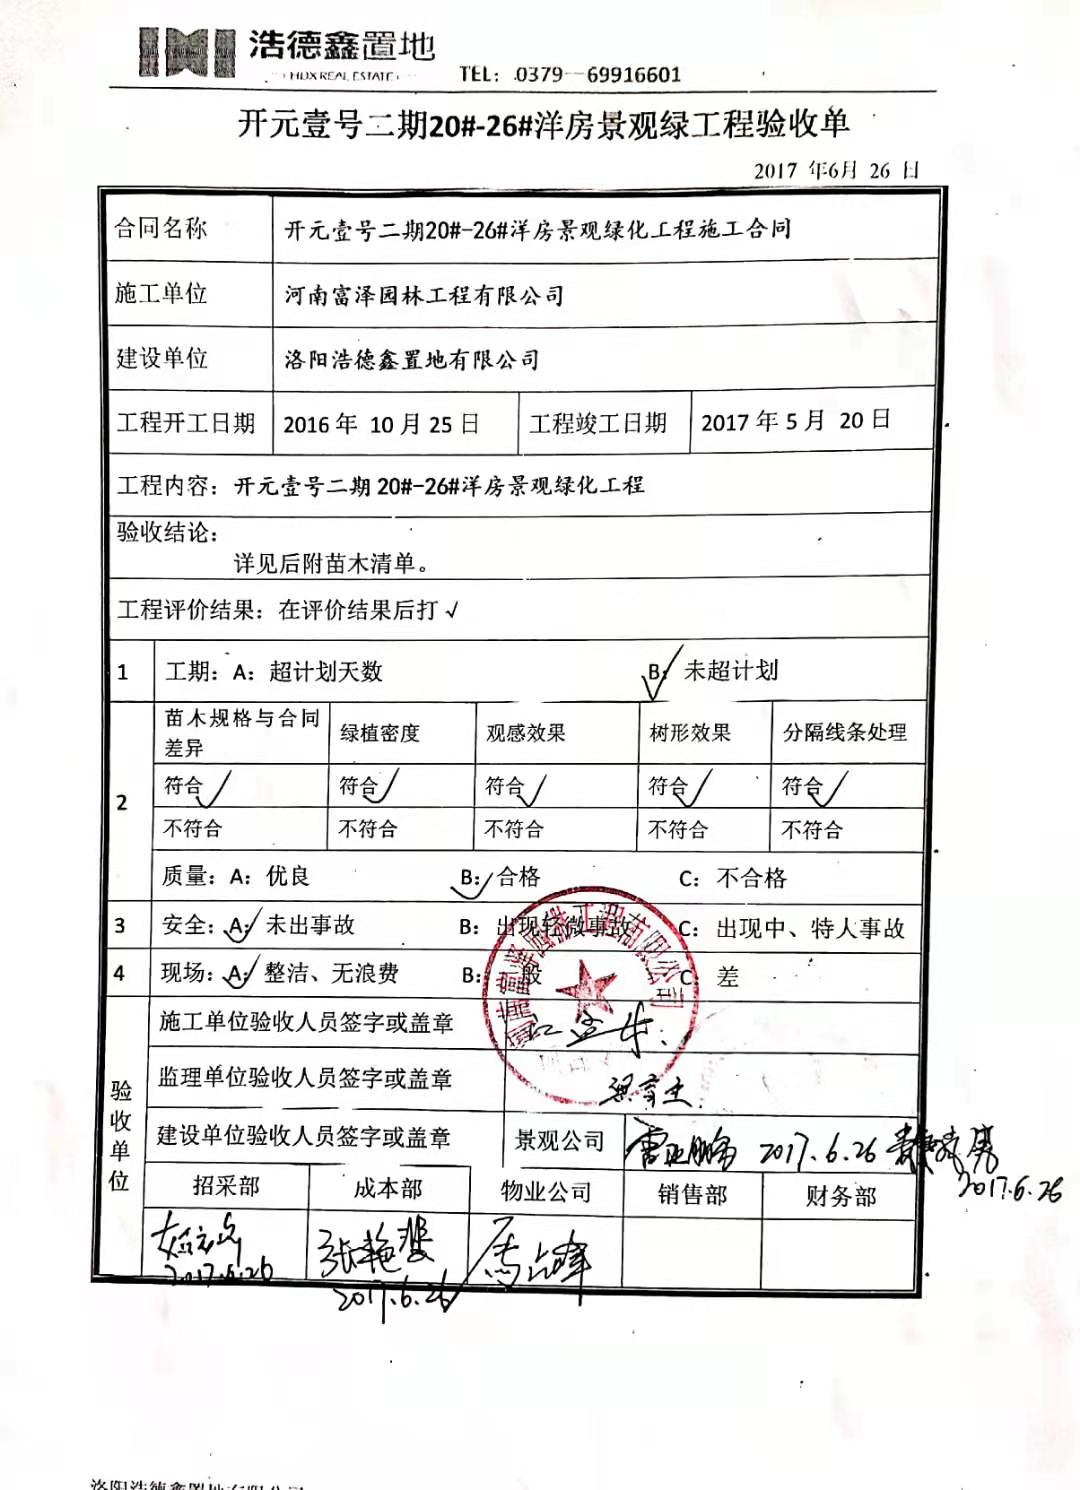 浩德鑫置地
HDX REAL ESTATE
TEL: 0379—69916601
开元壹号二期20#-26#洋房景观绿工程验收单
2017 年6月 26 日
合同名称 开元壹号二期20#-26#洋房景观绿化工程施工合同
施工单位 河南富泽园林工程有限公司
建设单位 洛阳浩德鑫置地有限公司
工程开工日期 2016年 10月25日 工程竣工日期 2017年5月 20日
工程内容：开元壹号二期20#-26#洋房景观绿化工程
验收结论：
详见后附苗木清单。
工程评价结果：在评价结果后打√
1 工期：A：超计划天数 B：未超计划
苗木规格与合同
差异 绿植密度 观感效果 树形效果 分隔线条处理
2
符合 符合 符合 符合 符合
不符合 不符合 不符合 不符合 不符合
质量：A：优良 B：合格 C：不合格
3 安全：A：未出事故 B：出现轻微事故 C：出现中、特人事故
4 现场：A：整洁、无浪费 B：一般 C：差
验收单位
施工单位验收人员签字或盖章
监理单位验收人员签字或盖章
建设单位验收人员签字或盖章 景观公司 2017.6.26
2017.6.26
招采部 成本部 物业公司 销售部 财务部
张艳
2017.6.26
2017.6.26
洛阳浩德鑫置地有限公司